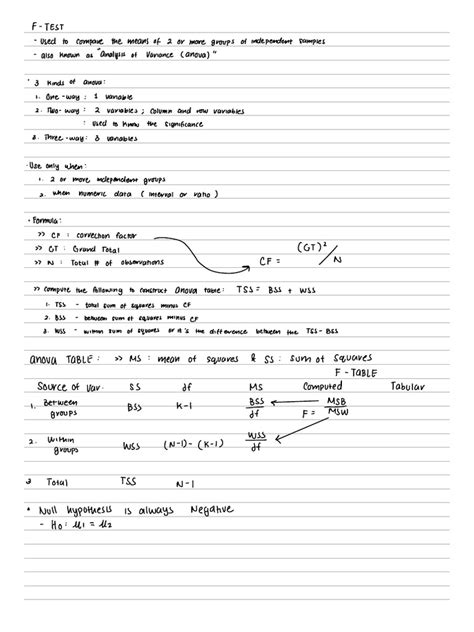 F - TEST
- Used to compare the means of 2 or more groups of independent samples
- also known as "analysis of variance (anova)"
* 3 kinds of anova:
1. One-way: 1 variable
2. Two-way: 2 variables; column and row variables
: used to know the significance
3. Three-way: 3 variables
- Use only when:
1. 2 or more independent groups
2. when numeric data (interval or ratio)
- Formula:
>> CF : correction factor
>> GT : Grand Total
>> N : Total # of observations
CF = (GT)² / N
>> compute the following to construct anova table: TSS = BSS + WSS
1. TSS - total sum of squares minus CF
2. BSS - between sum of squares minus CF
3. WSS - within sum of squares or it's the difference between the TSS - BSS
anova TABLE: >> MS : mean of squares & SS : sum of squares
F - TABLE
Source of Var. SS df MS Computed Tabular
1. Between groups BSS K-1 BSS/df F = MSB/MSW
2. Within groups WSS (N-1) - (K-1) WSS/df
3 Total TSS N-1
* Null hypothesis is always negative
- H₀: µ1 = µ2